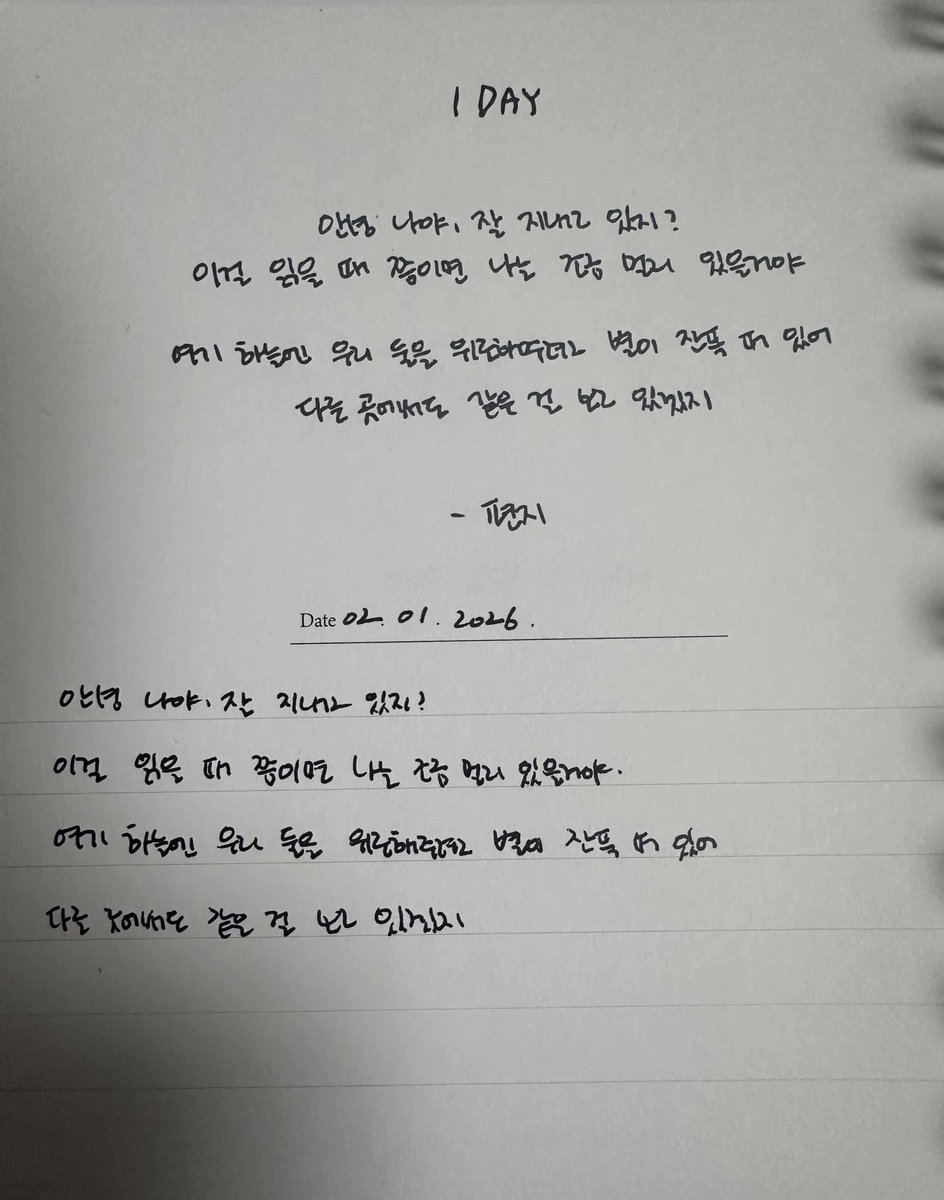 1 DAY
안녕 나야, 잘 지내고 있지?
이걸 읽을 때 쯤이면 나는 조금 멀리 있을거야
여기 하늘엔 우리 둘을 위로하려고 별이 잔뜩 떠 있어
다른 곳에서도 같은 걸 보고 있겠지
- 편지
Date 02. 01. 2026.
안녕 나야, 잘 지내고 있지?
이걸 읽을 때 쯤이면 나는 조금 멀리 있을거야.
여기 하늘엔 우리 둘을 위로해주려고 별이 잔뜩 떠 있어
다른 곳에서도 같은 걸 보고 있겠지